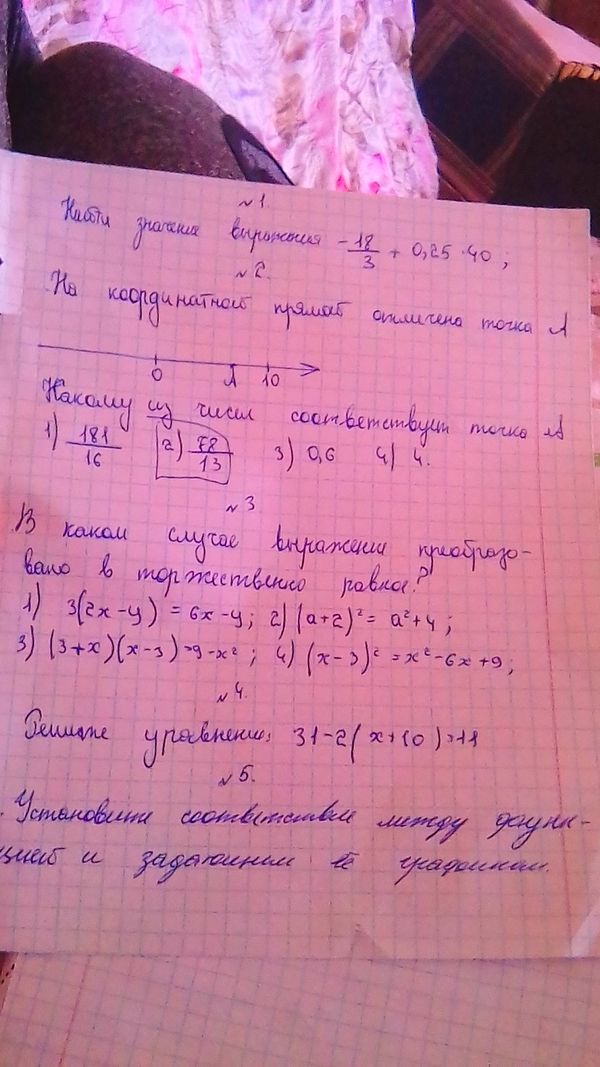 №1.
Найти значение выражения -18/3 + 0,25·40;
№2.
На координатной прямой отмечена точка А
0 А 10
Какому из чисел соответствует точка А
1) 181/16 2) 78/13 3) 0,6 4) 4.
№3
В каком случае выражение преобразо-
вано в торжественно равное?
1) 3(2x-y) = 6x-y; 2) (a+2)² = a²+4;
3) (3+x)(x-3)=9-x²; 4) (x-3)² = x²-6x+9;
№4.
Решите уравнение: 31-2(x+10)=11
№5.
Установите соответствие между функ-
цией и задающим её графиком.